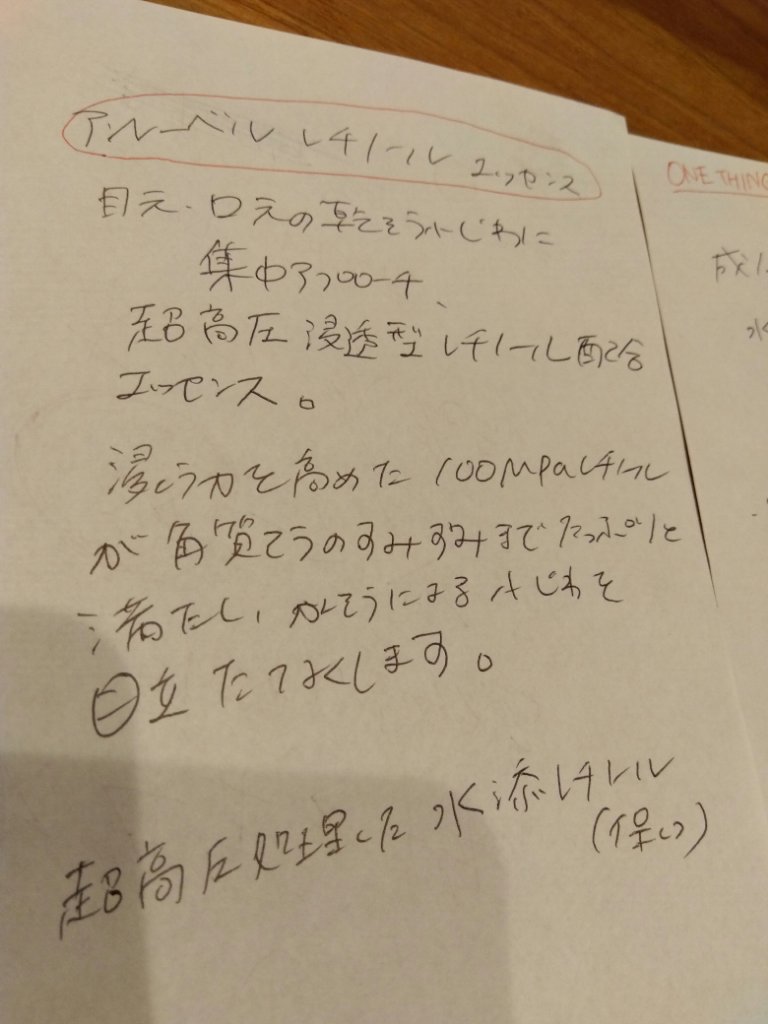 アンレーベル レチノール エッセンス
目元・口元の乾そう小じわに
集中アプローチ、
超高圧 浸透型 レチノール配合
エッセンス。
浸とう力を高めた 100MPaレチノール
が角質そうのすみずみまでたっぷりと
満たし、かんそうによる小じわを
目立たなくします。
超高圧処理した水添レチノール
(保しつ)
ONE THING
成
水